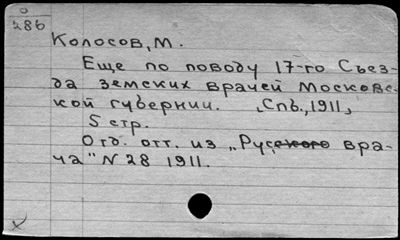 0
286
Колосов, М.
Еще по поводу 17-го Съез-
да земских врачей Московс-
кой губернии. [Спб., 1911]
5 стр.
Отд. отт. из "Русского вра-
ча" N 28 1911.